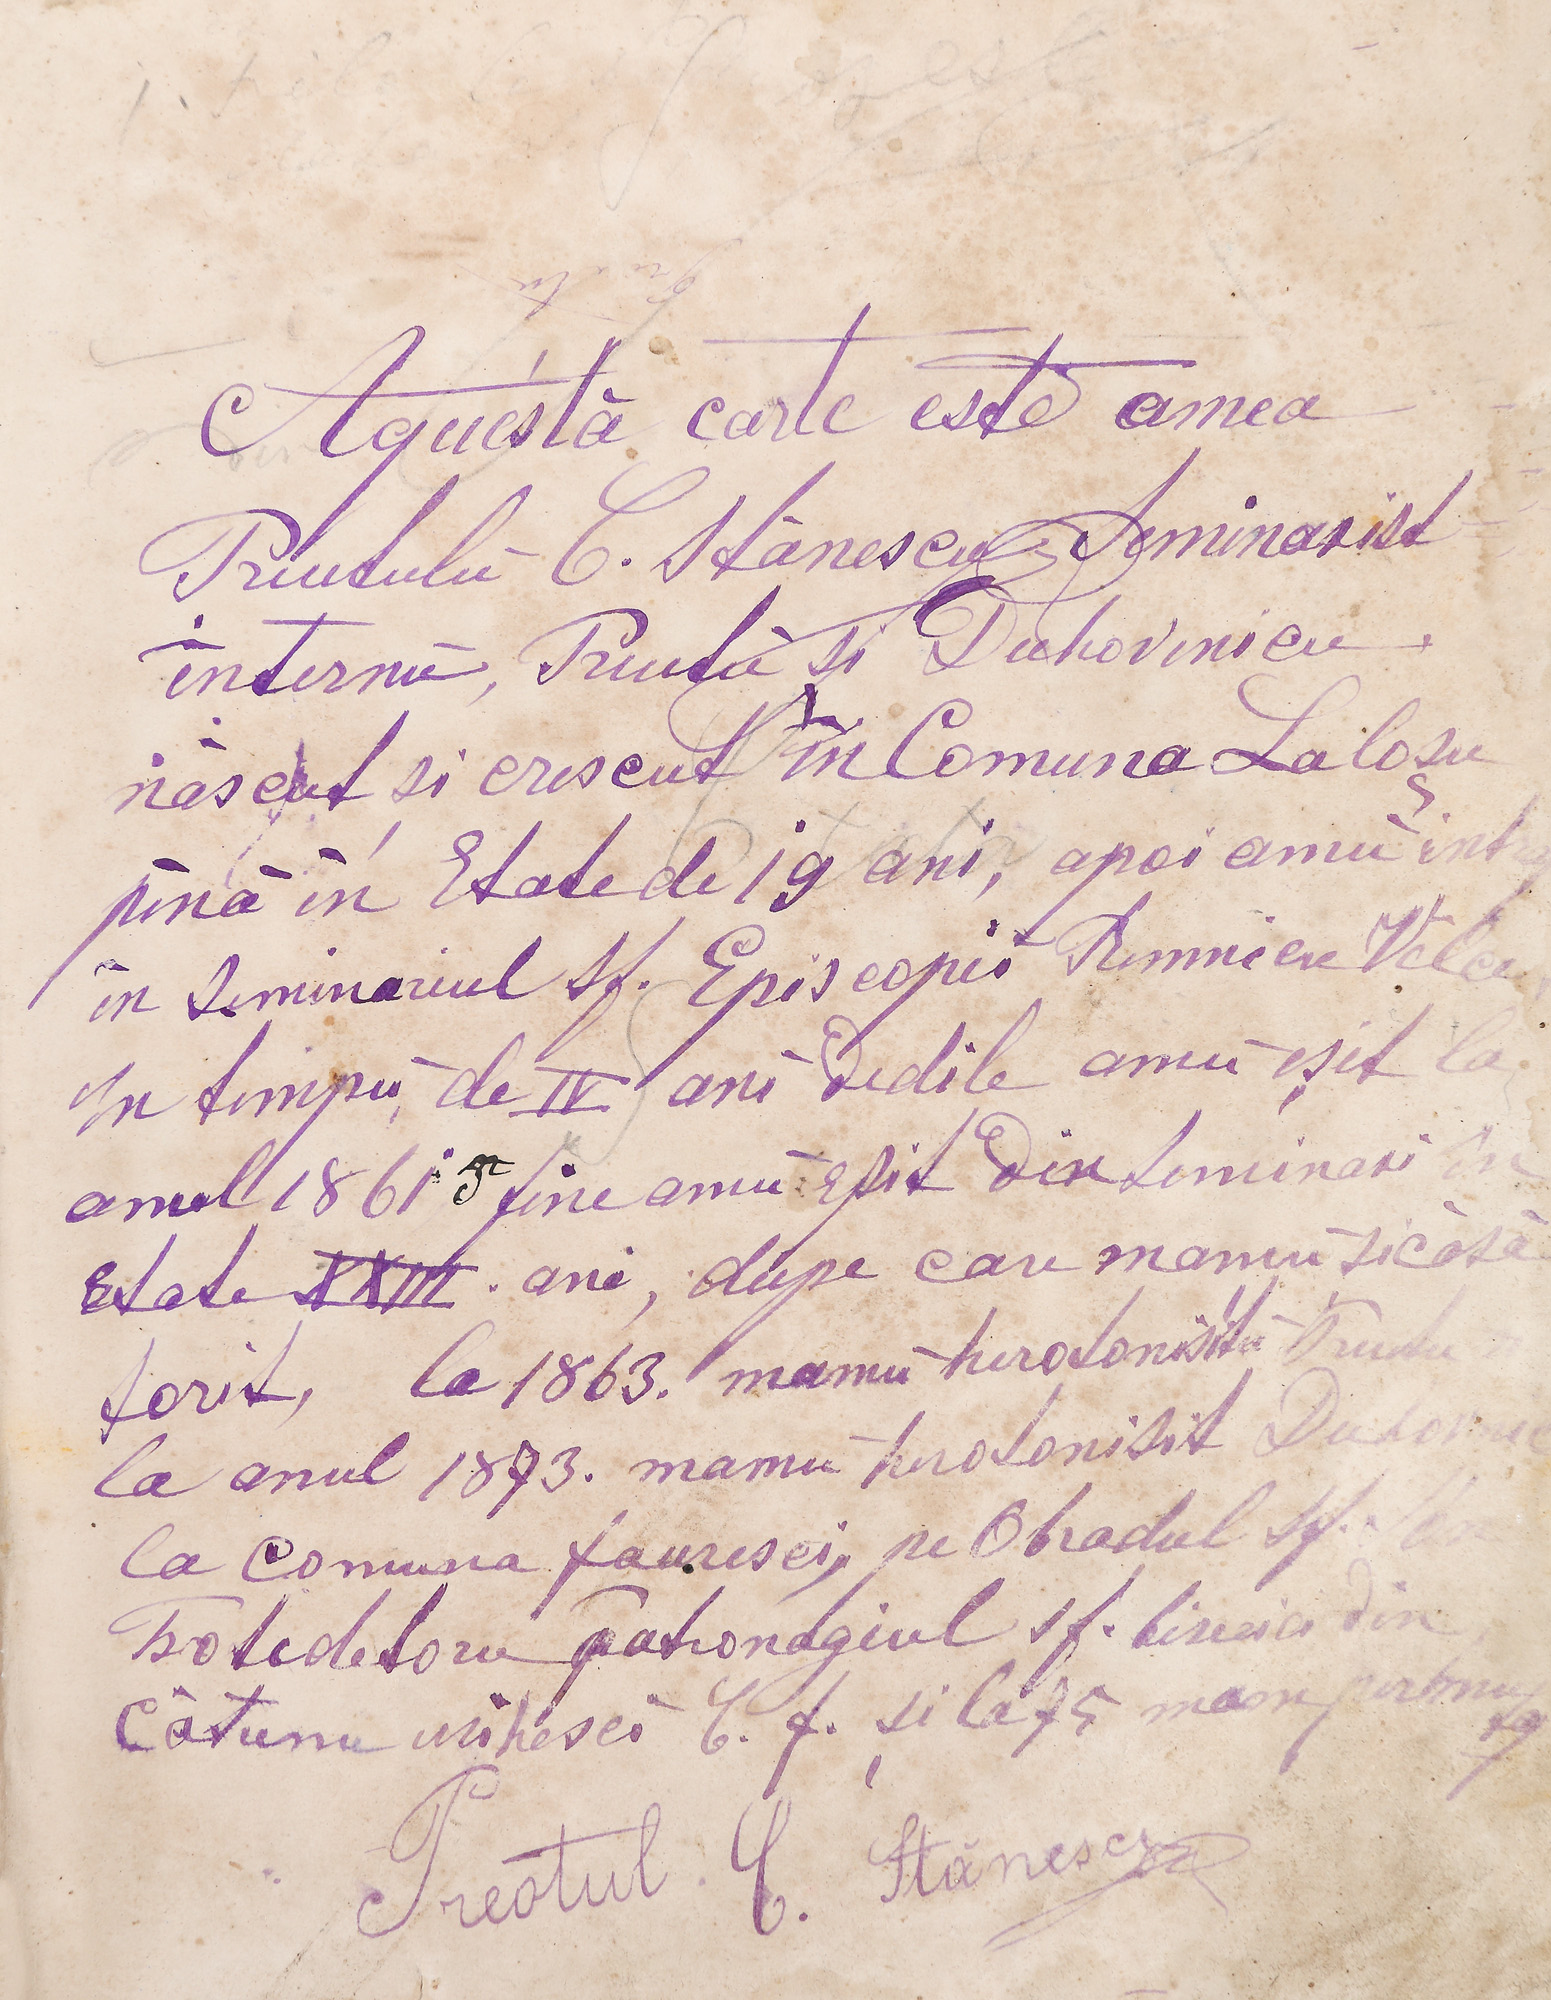 Aquéstă carte este amea
Priutulŭ C. Stănescu Seminarist
internŭ, Priutŭ si Duhovinicu.
născut si crescut în Comuna Lalosu
pină in Etate de 19 ani, apoi amŭ
in Seminariul Sf. Episcopii Rimnicu Vâlcea
In timpŭ de IV ani dedile amŭ eșit la
anul 1861 5 fine amŭ eșit din seminari in
Etate XXIII. ani, dupe care mamŭ sicăsă
torit, la 1863. mamŭ hirotonisitŭ Priutu
la anul 1873. mamŭ hirotonisit Duhovnic
la comuna fauresci, pe Obradul Sf.
Botedetoru patronagiul sf. biserici din
Cătunu C. f. și la 75 mam
Preotul C. Stănescu